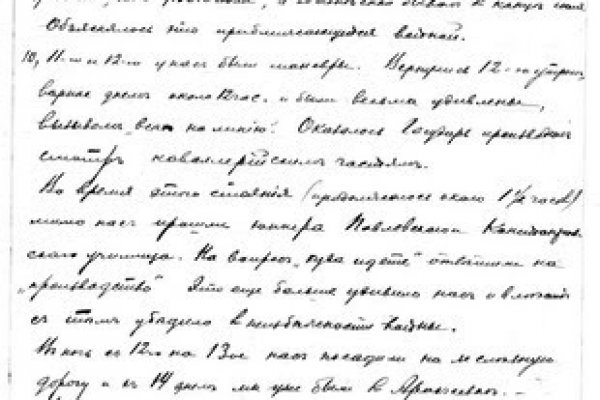 Объяснялось это приближающейся войной.
10, 11-го и 12-го у нас были маневры. Вернулись 12-го утром,
вернее днем около 12 час. и были весьма удивлены,
вызывом "всех на линию". Оказалось Государь произведет
смотр кавалерийским частям.
Во время этого стояния (продолжалось около 1 1/2 часов)
мимо нас прошли юнкера Павловского Константинов
ского училища. На вопрос "куда идете" отвечали на
"производство" Это еще больше удивило нас и
с тем убедило в неизбежности войны.
В ночь с 12го на 13ое нас посадили на железную
дорогу и 14 днем мы уже были в